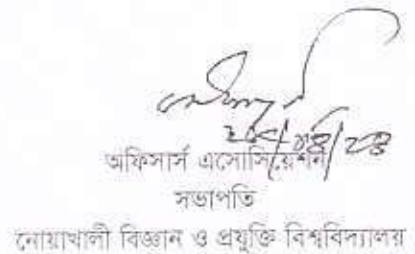 অফিসার্স এসোসিয়েশন
সভাপতি
নোয়াখালী বিজ্ঞান ও প্রযুক্তি বিশ্ববিদ্যালয়